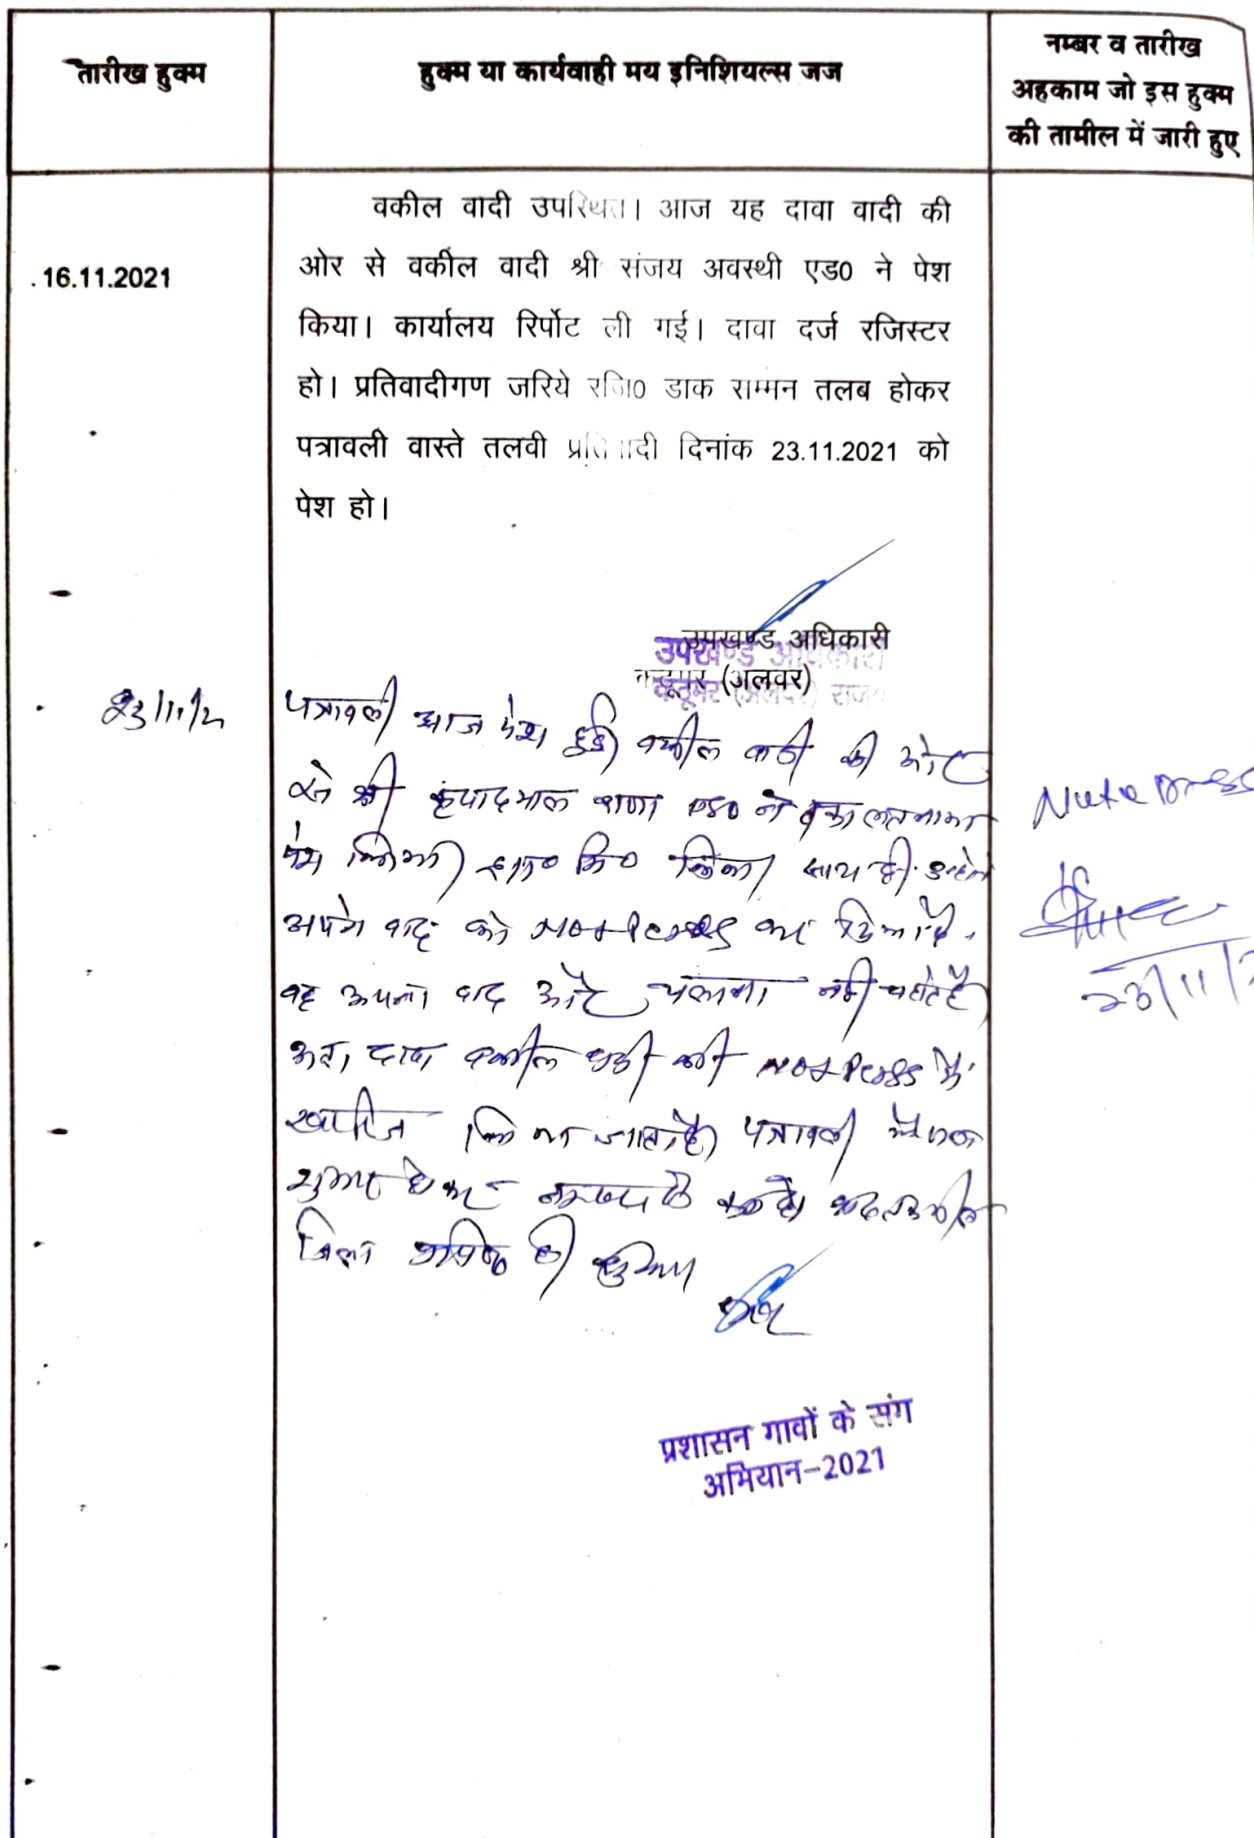 तारीख हुक्म
हुक्म या कार्यवाही मय इनिशियल्स जज
नम्बर व तारीख
अहकाम जो इस हुक्म
की तामील में जारी हुए
16.11.2021
वकील वादी उपस्थित। आज यह दावा वादी की
ओर से वकील वादी श्री संजय अवस्थी एड0 ने पेश
किया। कार्यालय रिर्पोट ली गई। दावा दर्ज रजिस्टर
हो। प्रतिवादीगण जरिये रजि0 डाक सम्मन तलब होकर
पत्रावली वास्ते तलवी प्रतिवादी दिनांक 23.11.2021 को
पेश हो।
उपखण्ड अधिकारी
कठूमर (अलवर)
उपखण्ड अधिकारी
कठूमर (अलवर) राज०
23/11/21
पत्रावली आज पेश हुई वकील वादी की ओर
से श्री ने वकालतनामा
पेश किया साथ ही उन्होंने
अपने वाद को कर दिया है
वह अपना वाद और चलाना नही चाहते है
अतः दावा वकील वादी की में
खारिज किया जाता है पत्रावली फैसल
शुमार होकर नम्बर से कम हो
23/11/2
प्रशासन गावों के संग
अभियान-2021